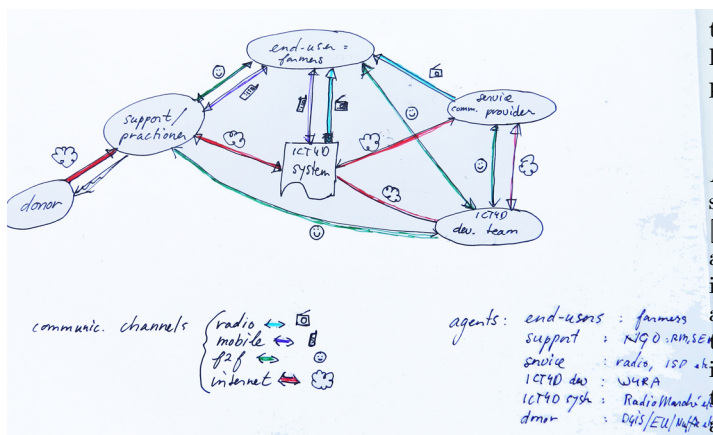 end-user =
farmers
support/
practioner
service
comm. provider
ICT4D
system
donor
ICT4D
dev. team
communic. channels
radio
mobile
f2f
internet
agents: end-users : farmers
support : NGO: RM, SEN
service : radio, ISP etc
ICT4D dev : W4RA
ICT4D syst : RadioMarché
donor : DGIS/EU/